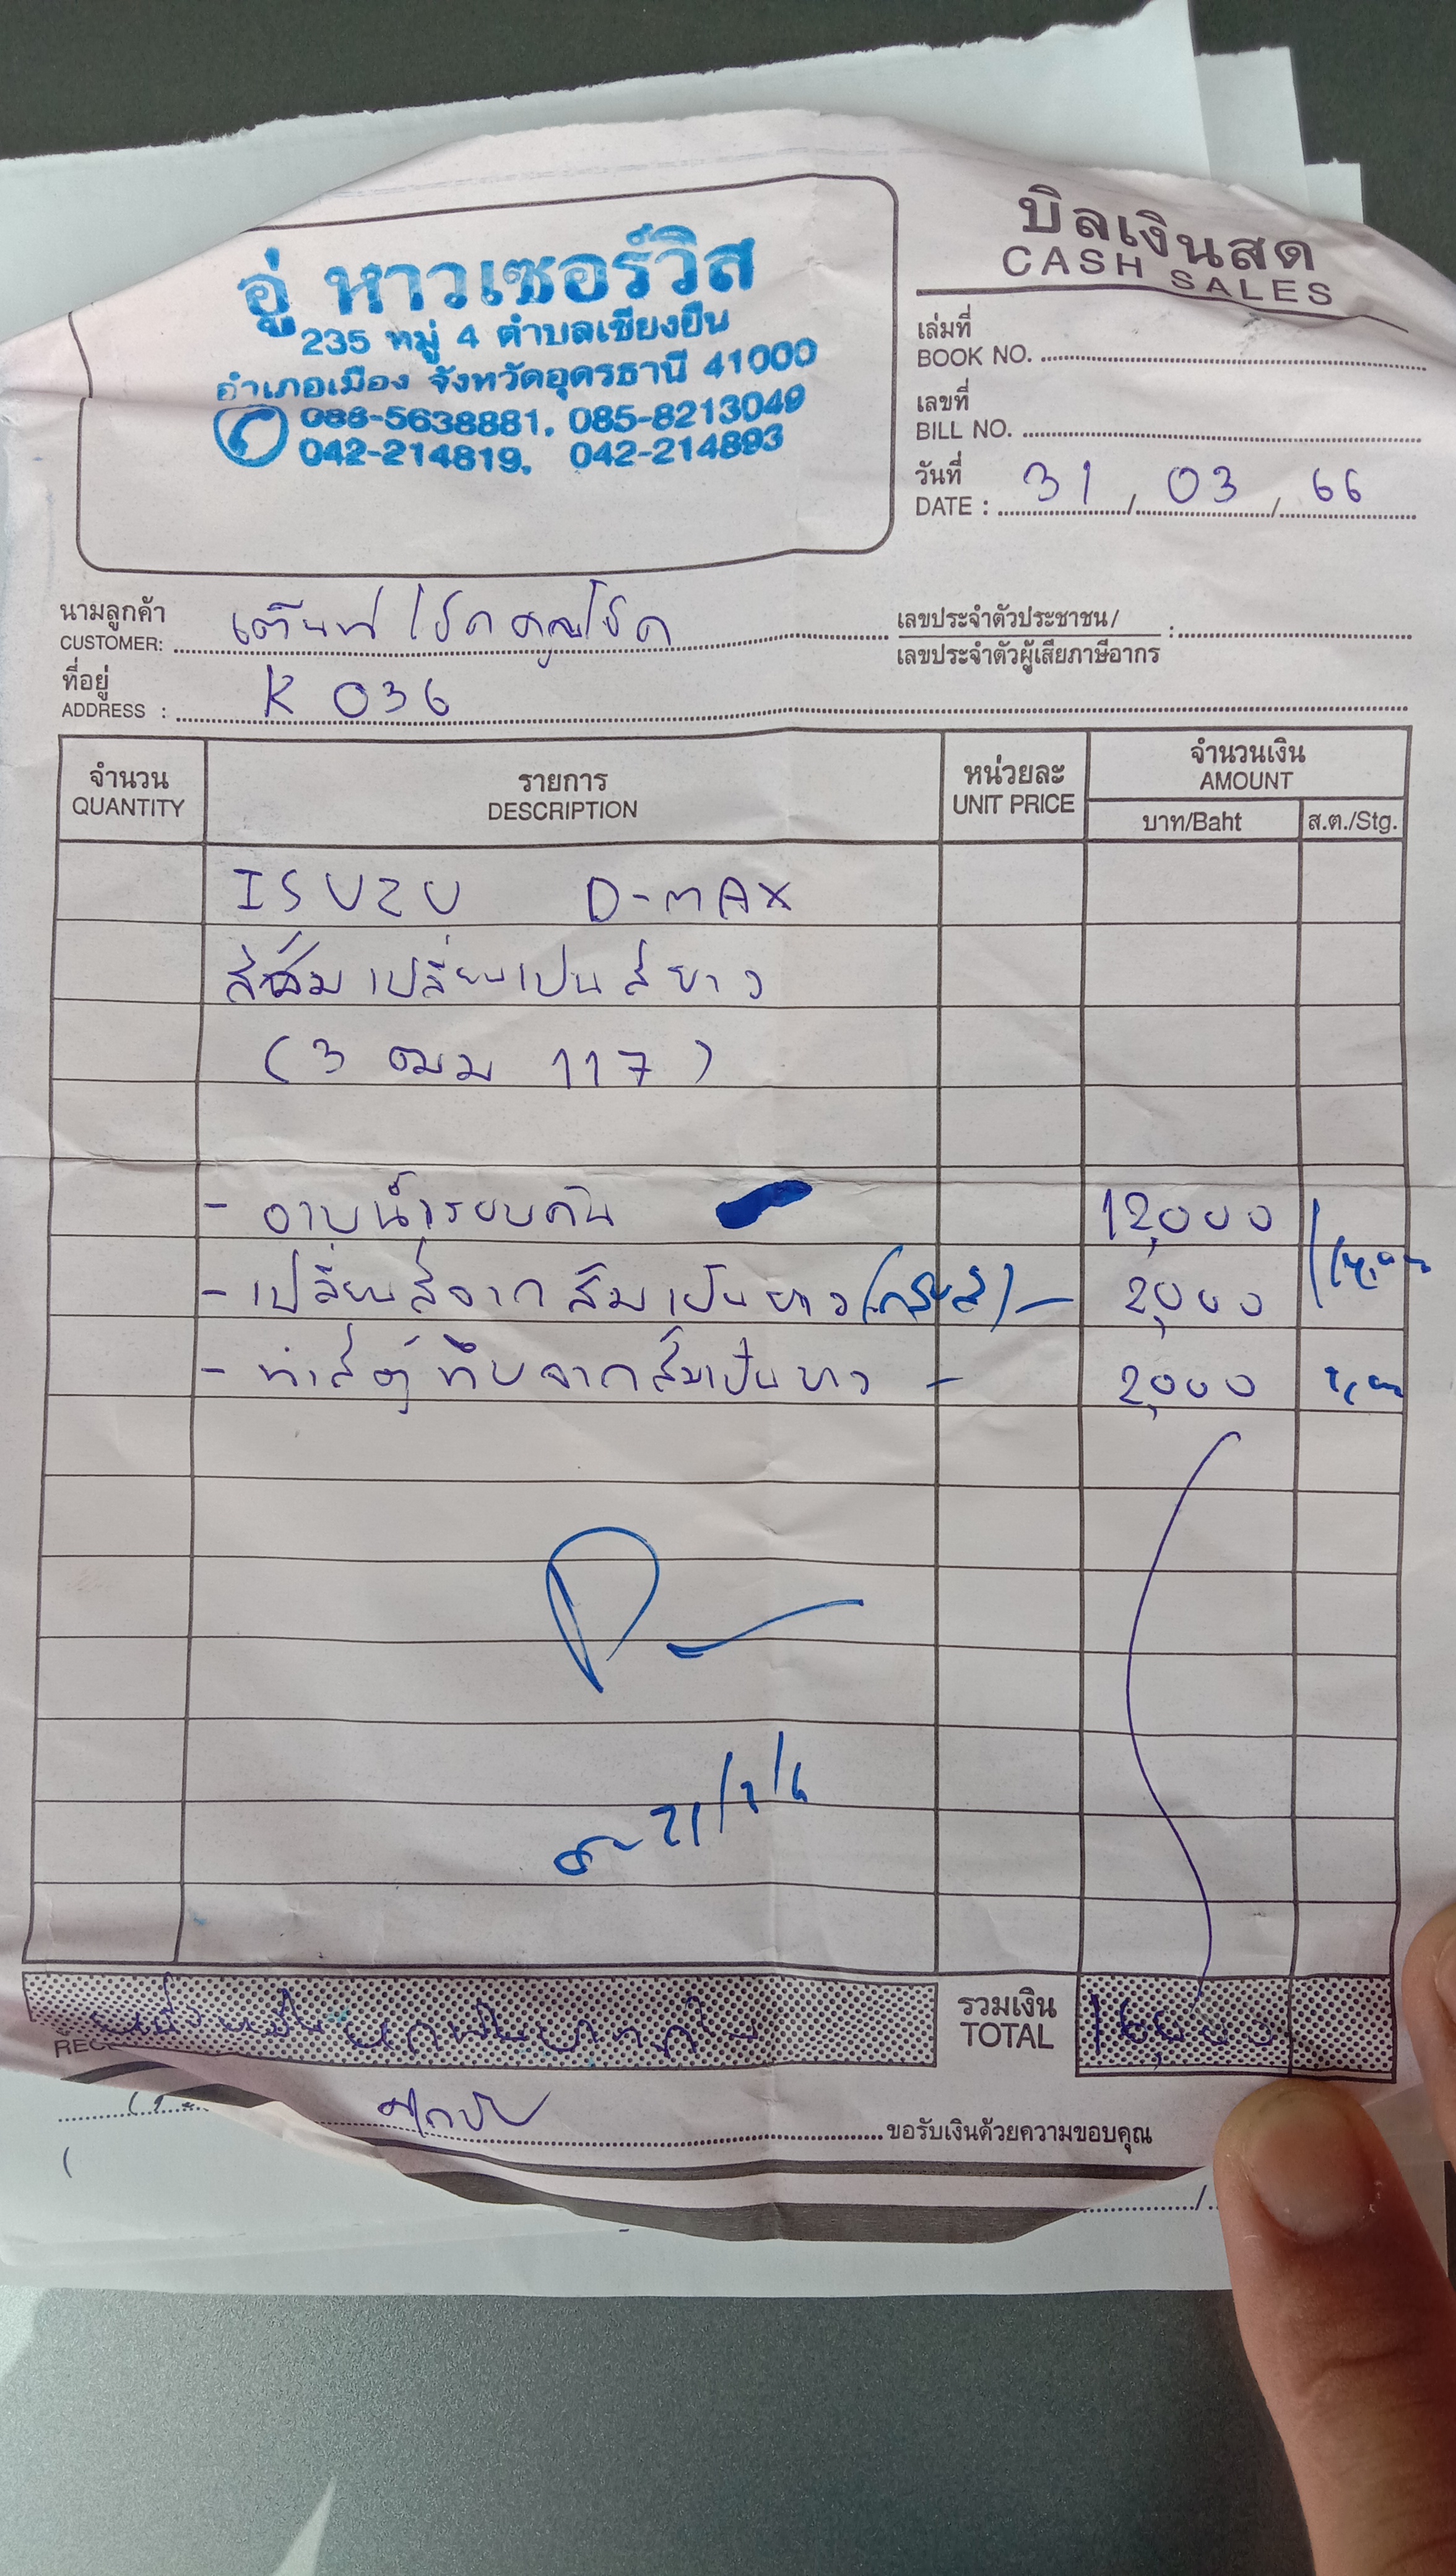 บิลเงินสด
CASH SALES
อู่ หาวเซอร์วิส
235 หมู่ 4 ตำบลเชียงยืน
อำเภอเมือง จังหวัดอุดรธานี 41000
088-5638881, 085-8213049
042-214819, 042-214893
เล่มที่
BOOK NO.
เลขที่
BILL NO.
วันที่
DATE : 31 / 03 / 66
นามลูกค้า
CUSTOMER: เต็นท์ โชคคูณโชค
เลขประจำตัวประชาชน /
เลขประจำตัวผู้เสียภาษีอากร :
ที่อยู่
ADDRESS : K 036
จำนวน
QUANTITY
รายการ
DESCRIPTION
หน่วยละ
UNIT PRICE
จำนวนเงิน
AMOUNT
บาท/Baht
ส.ต./Stg.
ISUZU D-MAX
สีส้ม เปลี่ยนเป็นสีขาว
(3 ฒม 117)
- อาบน้ำรอบคัน 12,000
- เปลี่ยนสีจากส้มเป็นขาว - 2,000
- ทำสีตู้ทึบจากส้มเป็นขาว - 2,000
หนึ่งหมื่นหกพันบาทถ้วน
รวมเงิน
TOTAL
16,000
ขอรับเงินด้วยความขอบคุณ